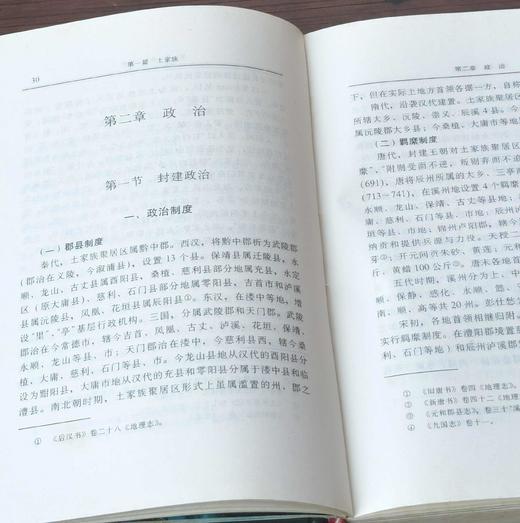 30
第一篇 土家族
第二章 政治
第一节 封建政治
一、政治制度
(一)郡县制度
秦代,土家族聚居区属黔中郡。西汉,将黔中郡析为武陵郡
(郡治在义陵,今溆浦县),设置13个县。保靖县属迁陵县,永
顺、龙山、古丈县属酉阳县,桑植、慈利县部分地属充县,永定
区(原大庸县)、慈利、石门县部分地属零阳县,吉首市和泸溪
县属沅陵县,凤凰、花垣县属辰阳县①。东汉,在溇中等地,增
设“里”、“亭”基层行政机构。三国,分属武陵郡和天门郡。武陵
郡治在今常德市,辖今吉首、凤凰、古丈、泸溪、花垣、保靖、
永顺、龙山等县、市;天门郡治在溇中,今慈利县西,辖今桑
植、大庸、慈利、石门等县、市。今龙山县地从汉代的酉阳县分
设为黚阳县,大庸市地从汉代的充县和零阳县分属于溇中县和临
澧县。南北朝时期,土家族聚居区形式上虽属滥置的州,郡之
① 《后汉书》卷二十八《地理志》。
第二章 政 治
下,但在实际上地方首领各据一方,自称
隋代,沿袭汉代建置。土家族聚居区
所辖大乡、沅陵、崇义、辰溪4县。
属沅陵郡大乡县;今桑植、大庸市等地
(二)羁縻制度
唐代,封建王朝对土家族聚居区
縻”,“附则受而不逆,叛则弃而不追
(691),唐将辰州所属的大乡、三亭两
(713~741),在溪州地设4个羁縻
永顺、龙山、保靖、古丈等县地;
庸、慈利、石门等县、市地;辰州
县、市地;锦州卢阳郡,辖今
纳资和提供兵源与力役。天授二
芽②;开元间贡朱砂、黄连;元
州、黄蜡100公斤③。唐末五
五代时期,溪州分为上、中
顺、保静、感化、永顺、懿、
南、顺、高等共20州。彭仕愁
宋初,各地首领相继归附。
实行羁縻制度。在澧阳郡境置
利、石门等地)和辰州泸溪郡
① 《旧唐书》卷四《地理志》。
② 《新唐书》卷四十二《地理志》
③ 《元和郡县志》卷三十
④ 《九国志》卷十一。